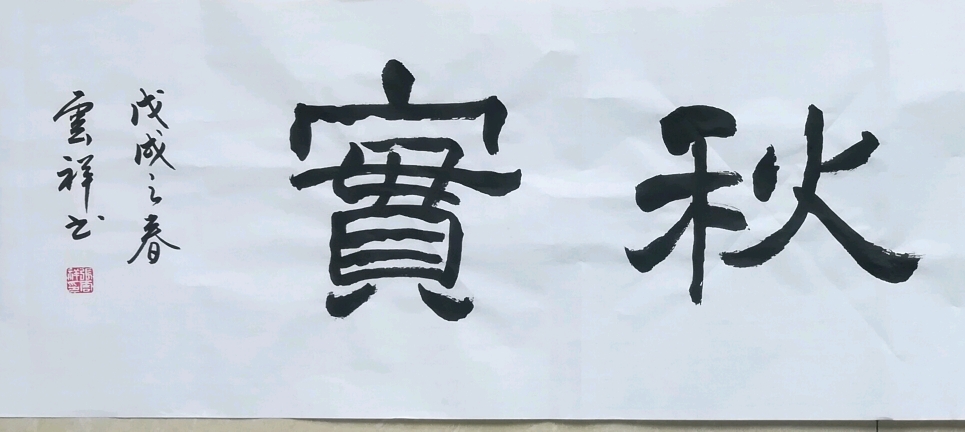 秋實
戊戌之春
雲祥书